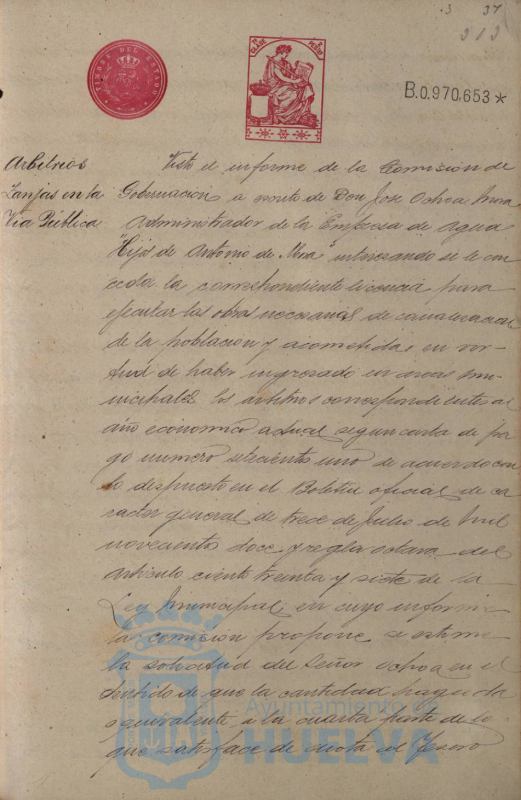 3 37
313
TIMBRE DEL ESTADO
CLASE PESETA
B.0.970,653*
Arbitrios
Zanjas en la
Via Pública
Visto el informe de la Comisión de
Gobernación a escrito de Don José Ochoa
Administrador de la Empresa de Aguas
"Hijos de Antonio de Mora" interesando se le con
ceda la correspondiente licencia para
ejecutar las obras necesarias de canalizacion
de la poblacion y acometidas en vir-
tud de haber ingresado en arcas mu-
nicipales los arbitrios correspondientes al
año economico actual segun carta de pa
go numero setecientos uno de acuerdo con
lo dispuesto en el Boletin oficial de ca
racter general de trece de Julio de mil
novecientos doce y regla octava del
articulo ciento treinta y siete de la
Ley Municipal en cuyo informe
la comisión propone se estime
la solicitud del Señor Ochoa en el
sentido de que la cantidad pagada
equivalente a la cuarta parte de lo
que satisface de cuota al Tesoro
Ayuntamiento de
HUELVA